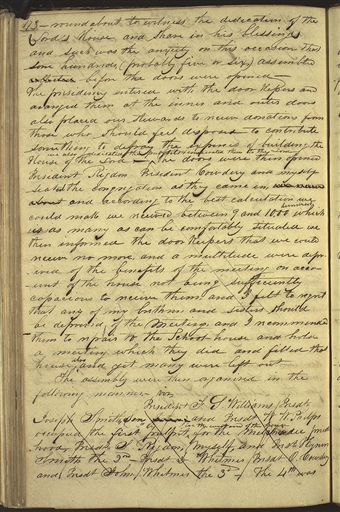 173 — round about to witness the dedication of the
Lord's House and share in his blessings
and such was the anxiety on this occasion that
some hundreds, (probably five or six,) assembled
before the doors were opened—
The presidency entered with the door keepers and
aranged them at the inner and outer doors
also placed our stewards to receiv donations from
those who should feel disposed to contribute
something to defray the expenses of building the
House of the Lord — the doors were then opened
President Rigdon President Cowdery and myself
seated the congregation as they came in,
and according to the best calculation we
could make we received between 9 and 1000 which
is as many as can be comfortably situated we
then informed the door keepers that we could
receiv no more, and a multitude were depr-
ived of the benefits of the meeting on acco-
unt of the house not being sufficiently
capacious to receiv them, and I felt to regret
that any of my brethren and sisters should
be deprived of the meeting, and I recommended
them to repair to the School-house and hold
a meeting which they did and filled that
house also and yet many were left out —
The assembly were then organized in the
following manner viz.
President F. G. Williams Presdt
Joseph Smith, Sen and Presdt W. W. Phelps
occupied the first pulpit for the Melchisedec priest
hood, Presdt S. Rigdon, Myself, and Presdt Hyrum
Smith the 2nd — Presdt D. Whitmer Presdt O. Cowdery
and Presdt John Whitmer the 3d — The 4th was